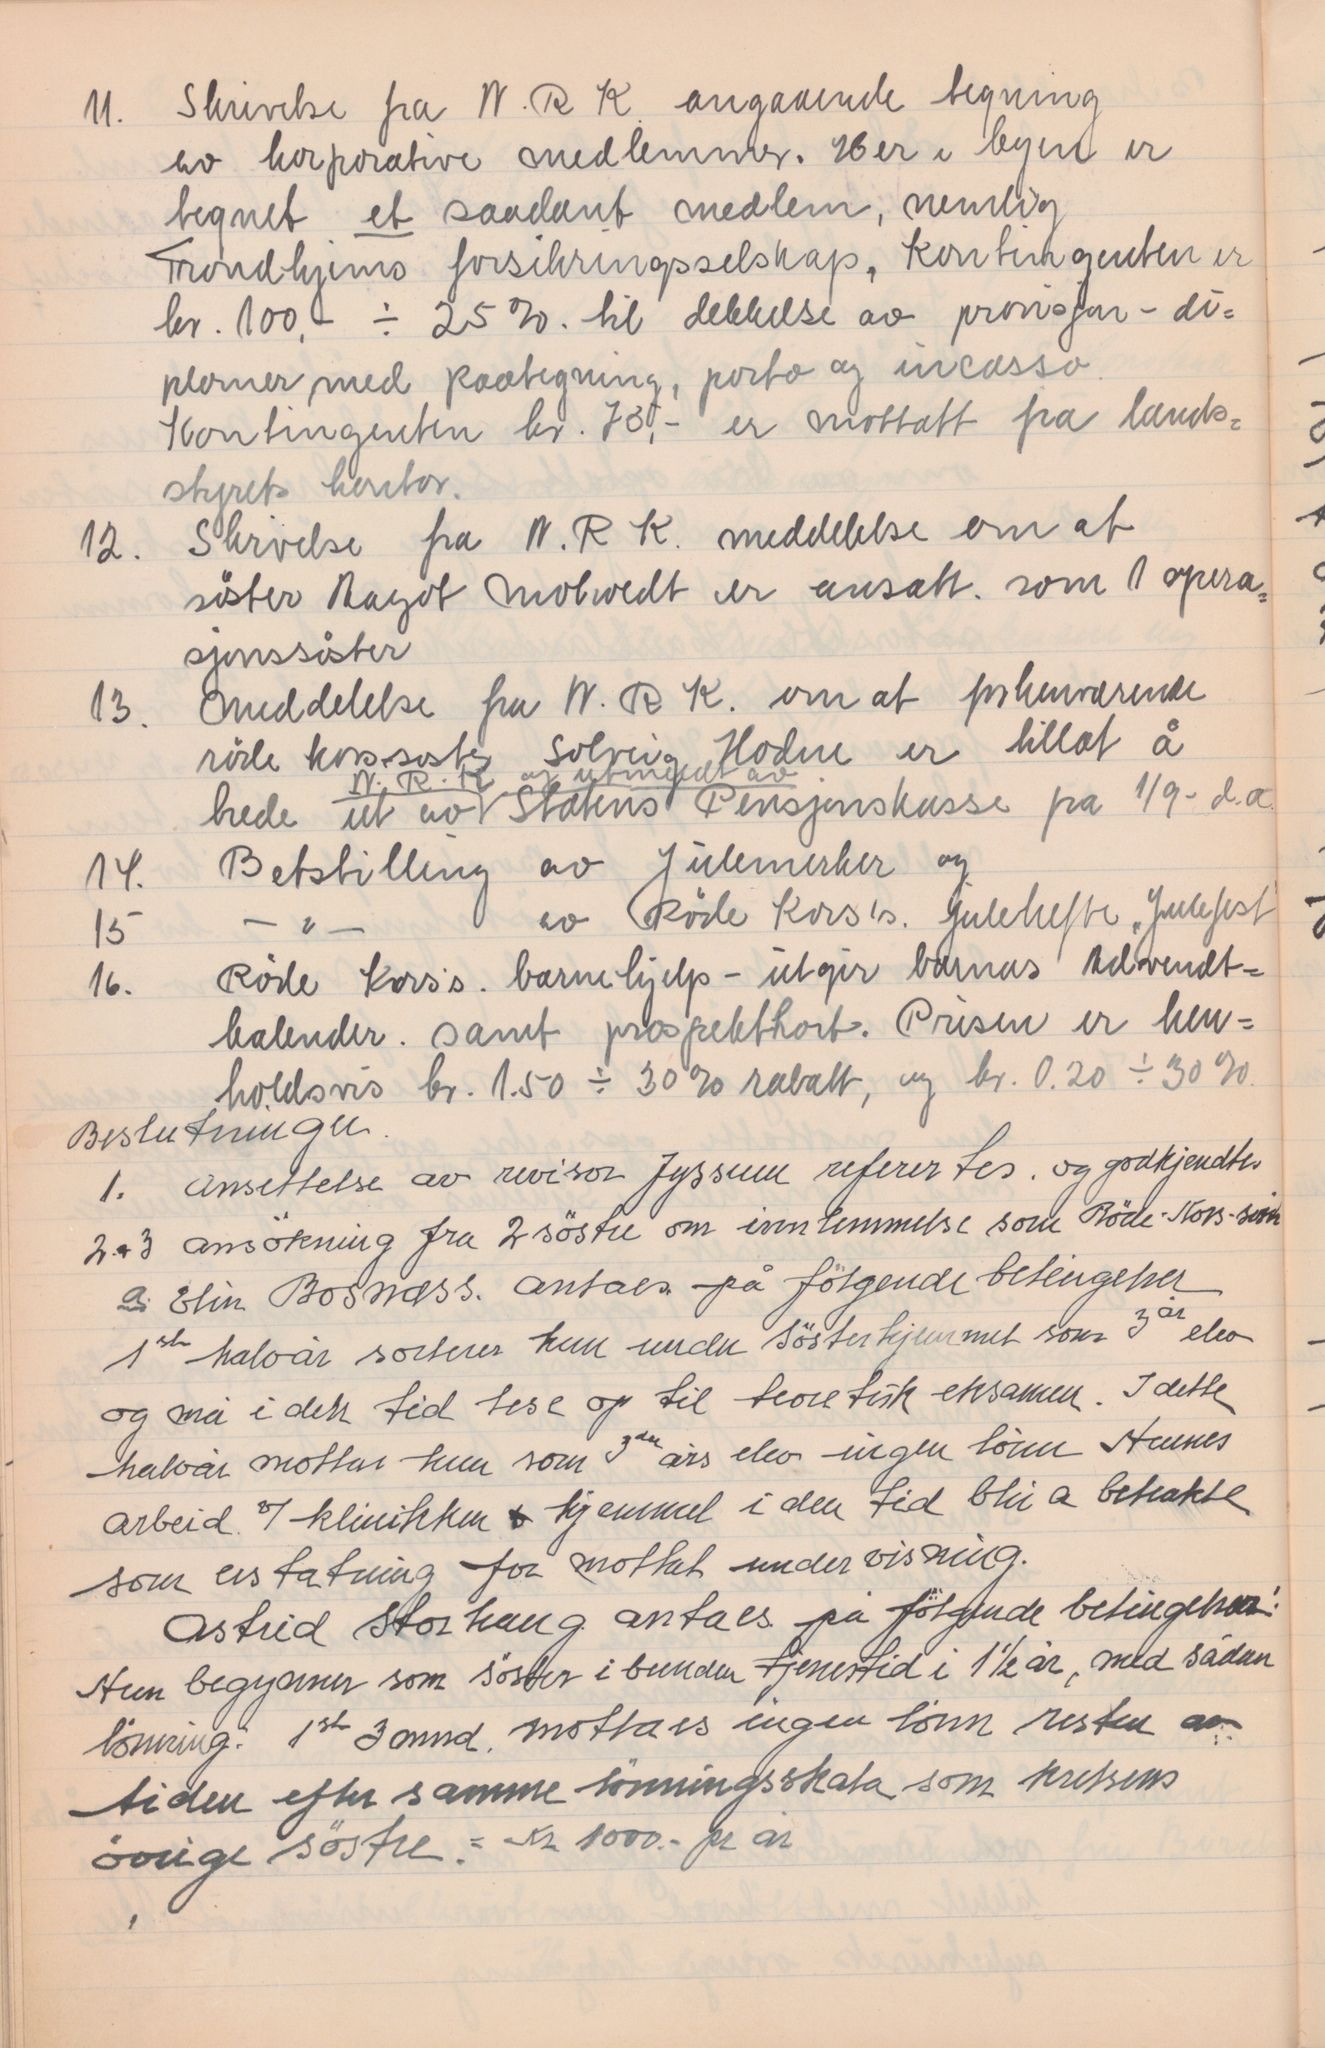 11. Skrivelse fra N. R K. angaaende tegning
av korporative medlemmer. Her i byen er
tegnet et saadant medlem, nemlig
Trondhjems forsikringsselskap, Kontingenten er
kr. 100,- ÷ 25%. til dekkelse av provisjon - di=
plomer med paategning, porto og incasso
Kontingenten kr. 75,- er mottatt fra lands=
styrets kontor.
12. Skrivelse fra N. R K. meddelelse om at
söster Ragot Moltvedt er ansatt. som 1 opera=
sjonssöster
13. Meddelelse fra N. R K. om at forhenværende
röde korssöster Solveig Hodne er tillat å
N. R. K. og utmeldt av
trede ut av Statens Pensjonskasse fra 1/9- d.a.
14. Betstilling av Julemerker og
15 - " - av Röde Kors's. julehefte „Julefest"
16. Röde Kors's. barnehjelp - utgir barnas Advendt=
kalender. samt prospektkort. Prisen er hen=
holdsvis kr. 1.50 ÷ 30% rabatt, og kr. 0.20 ÷ 30%.
Beslutninger.
1. Ansettelse av revisor Jyssum refererтes. og godkjendtes
2 + 3 Ansökning fra 2 söstre om innlemmelse som Röde-Kors-
a. Elin Bosnæss. antaes på fölgende betingelser
1ste halvår sorterer hun under Søsterhjemmet som 3 år elev
og må i den tid lese op til teoretisk eksamen. I dette
halvår mottar hun som 3die års elev ingen lönn Hennes
arbeid v/ klinikken & hjemmet i den tid bli a betrakte
som erstatning for mottat undervisning.
Astrid Storhaug antaes på fölgende betingelser:
Hun begynner som söster i bunden tjenestid i 1½ år, med sådan
lönning: 1ste 3 mnd. mottaes ingen lönn resten av
tiden efter samme lönningsskala som kretsens
övrige söstre. = Kr 1000.- pr år